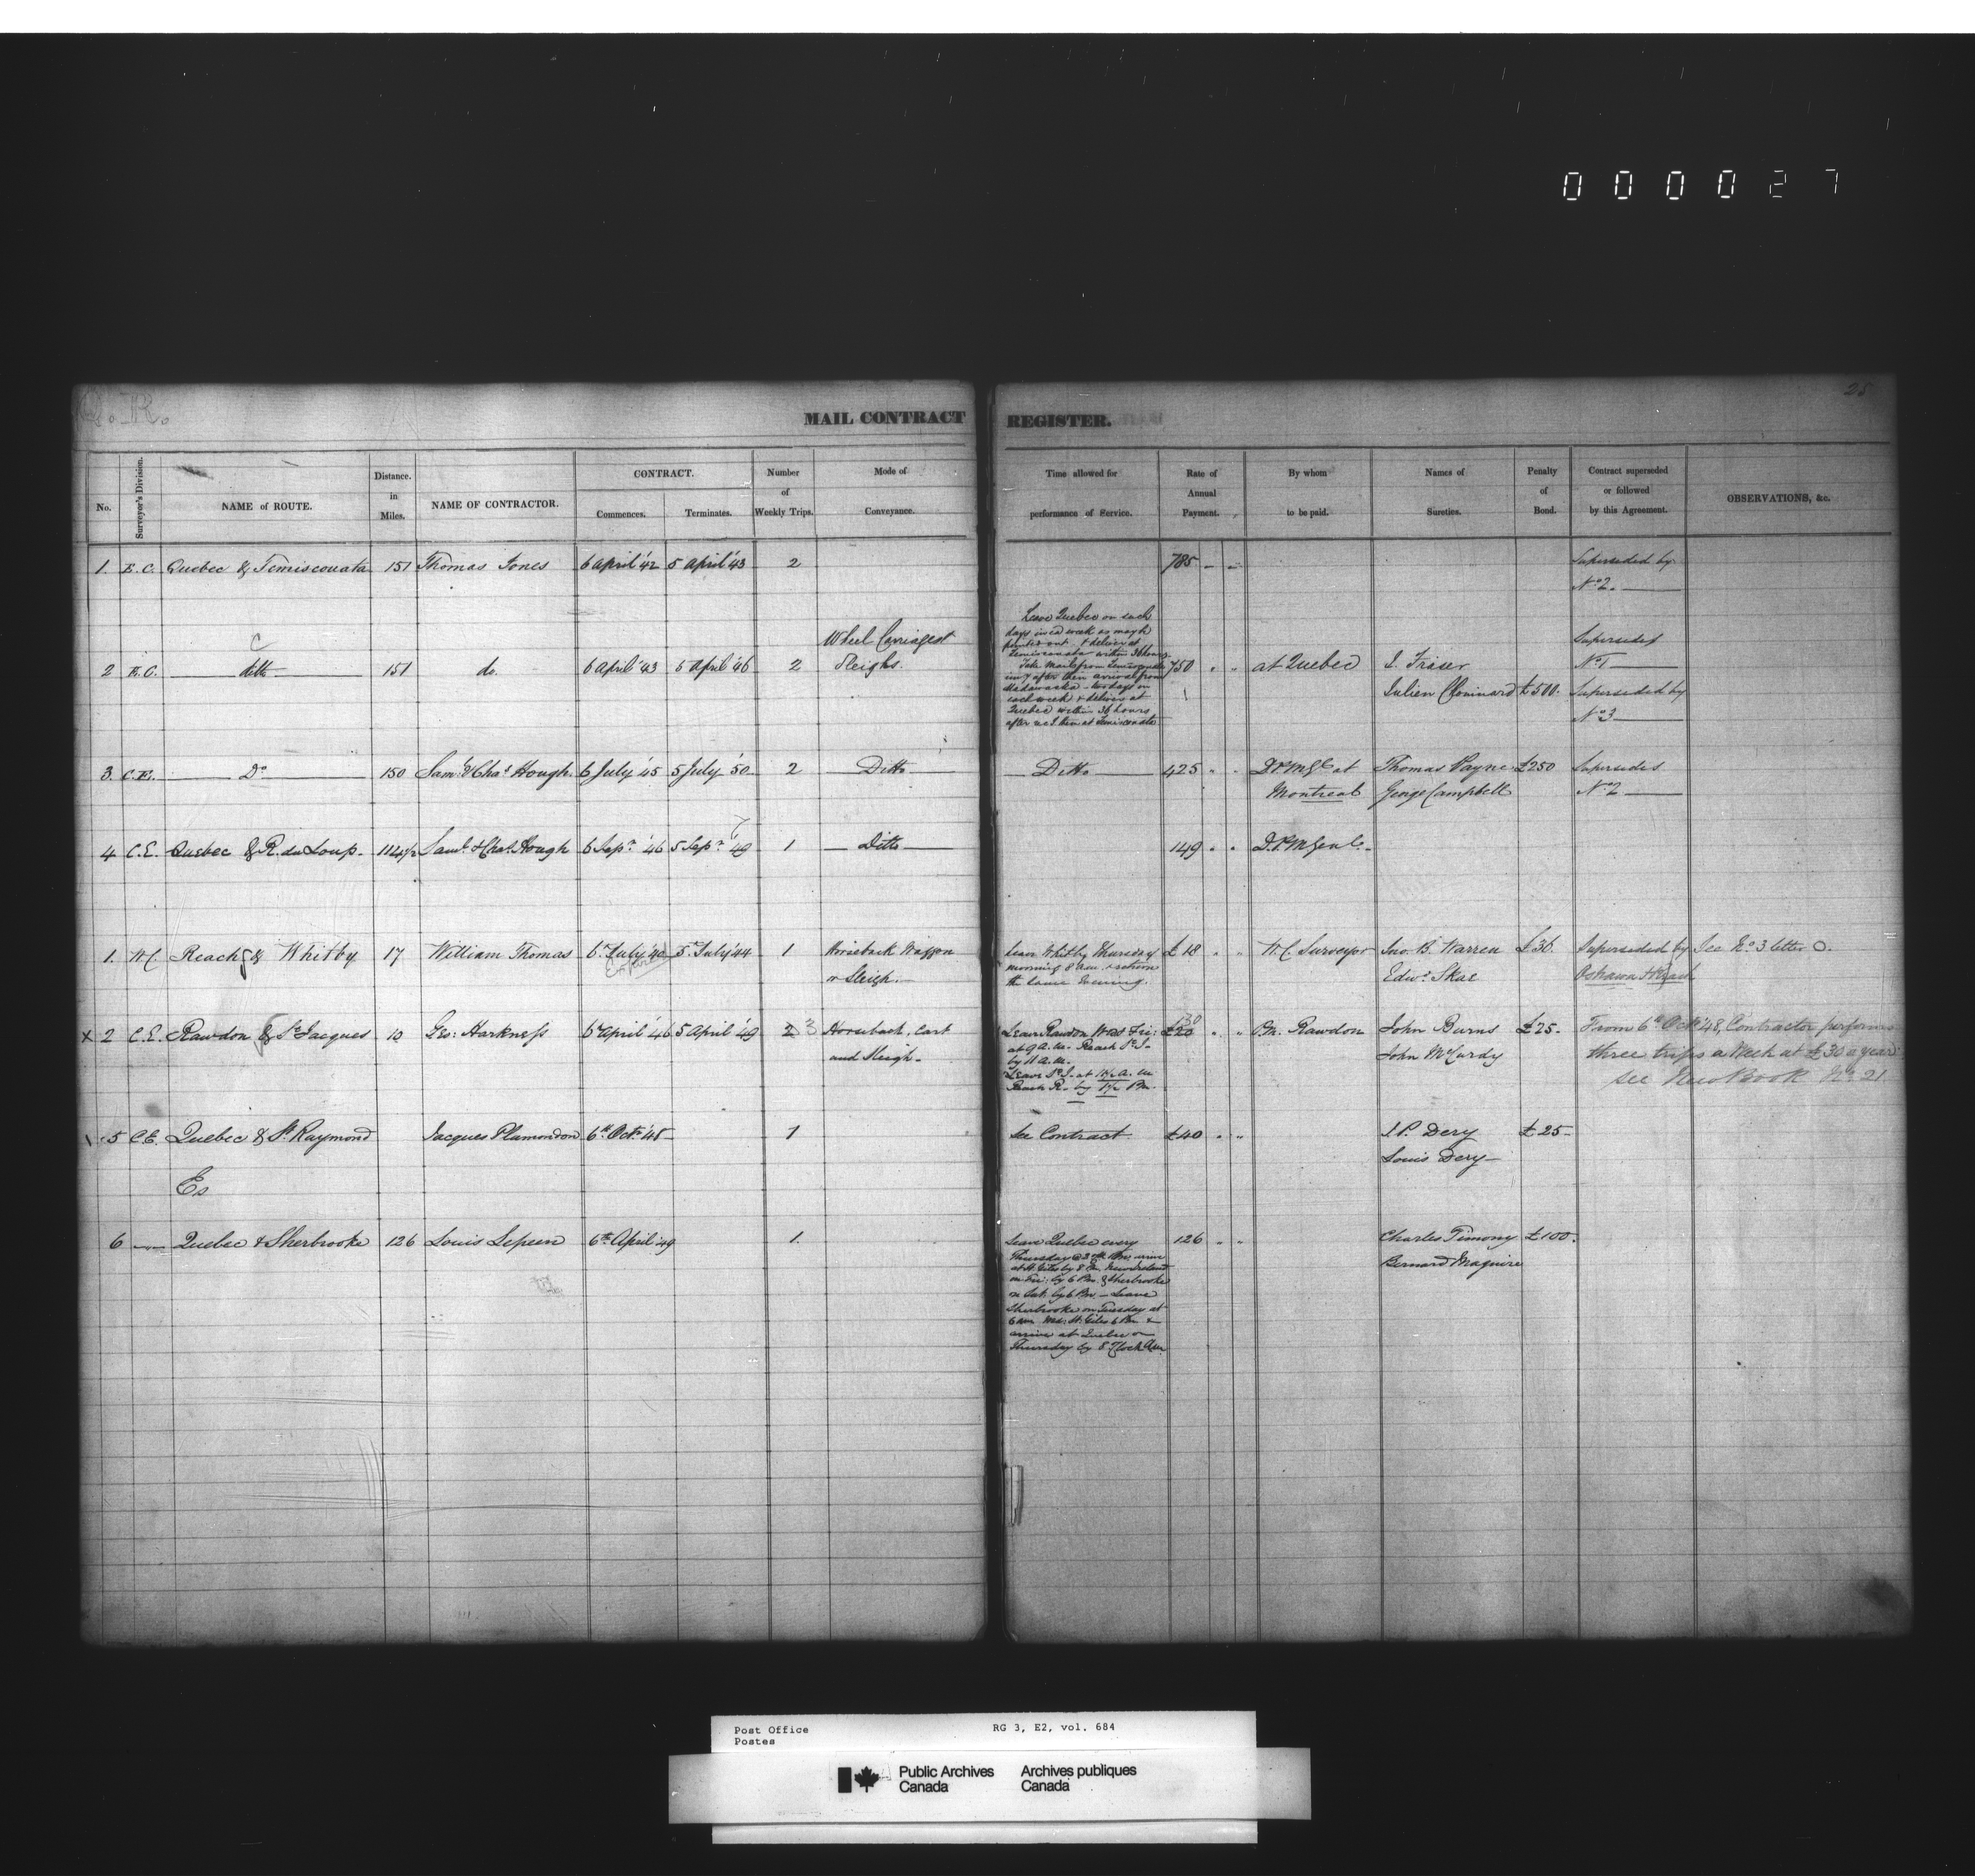 000027
25
Q. R.
MAIL CONTRACT REGISTER.
No. Surveyor's Division. NAME of ROUTE. Distance. in Miles. NAME OF CONTRACTOR. CONTRACT. Commences. Terminates. Number of Weekly Trips. Mode of Conveyance. Time allowed for performance of Service. Rate of Annual Payment. By whom to be paid. Names of Sureties. Penalty of Bond. Contract superseded or followed by this Agreement. OBSERVATIONS, &c.
1. E.C. Quebec & Temiscouata 151 Thomas Jones 6 April '42 5 April '43 2 785 - - Superseded by
No 2.
2 E.C. ditto 151 do. 6 April '43 5 April '46 2 Wheel Carriages or
Sleighs.
Leave Quebec on such
days in ea week as may be
pointed out & deliver at
Temiscouata within 36 hours.
Take Mails from Temiscouata
after their arrival from
Madawaska - two days in
each week & deliver at
Quebec within 36 hours
after
750 " " at Quebec J. Fraser
Julien Chouinard £500. Supersedes
No 1
Superseded by
No 3
3. C.E. Do 150 Saml & Chas Hough. 6 July '45 5 July '50 2 Ditto Ditto 425 " " D.P.M.Gl at
Montreal
Thomas Payne
George Campbell
£250 Supersedes
No 2
4 C.E. Quebec & R. du Loup. 112 1/2 Saml. & Chas. Hough 6 Sepr '46 5 Sepr '49 1 Ditto 149 " " D.P.M Genl.
7
1. W.C Reach & Whitby 17 William Thomas 6 July '40 5 July '44 1 Horseback Waggon
or Sleigh.
Expired
Leave Whitby Thursday
morning 8 a.m. & return
the same Evening.
£18 " " W.C. Surveyor Jno. B. Warren
Edwd Skae
£36. Superseded by
Oshawa & Reach
See No 3 letter O.
x 2 C.E. Rawdon & St Jacques 10 Geo: Harkness 6 April '46 5 April '49 2 3 Horseback, Cart
and Sleigh.
Leave Rawdon Wed & Fri:
at 9 A.M. Reach St J-
by 11 A.M.
Leave St J. at 11 1/2 A.M
Reach R. by 1 1/2 PM.
30
£20 " " P.M. Rawdon John Burns
John McCurdy
£25. From 6th Octr '48, Contractor performs
three trips a Week at £30 a year:
see New Book No. 21
5 C.E. Quebec & St Raymond Jacques Plamondon 6th Octr '48 1 See Contract £40 " " J.P. Dery
Louis Dery
£25
Es
6 Quebec & Sherbrooke 126 Louis Lepeen 6th April '49 1.
Leave Quebec every
Thursday @ 3 PM arrive
at St Giles by 8 PM New Ireland
on Fri: by 6 PM. & Sherbrooke
on Sat. by 6 PM - Leave
Sherbrooke on Tuesday at
6 am Wed: St. Giles 6 PM &
arrive at Quebec on
Thursday by 8 O'Clock A.M.
126 " " Charles Timony
Bernard Maguire
£100.
Post Office
Postes
RG 3, E2, vol. 684
Public Archives
Canada
Archives publiques
Canada